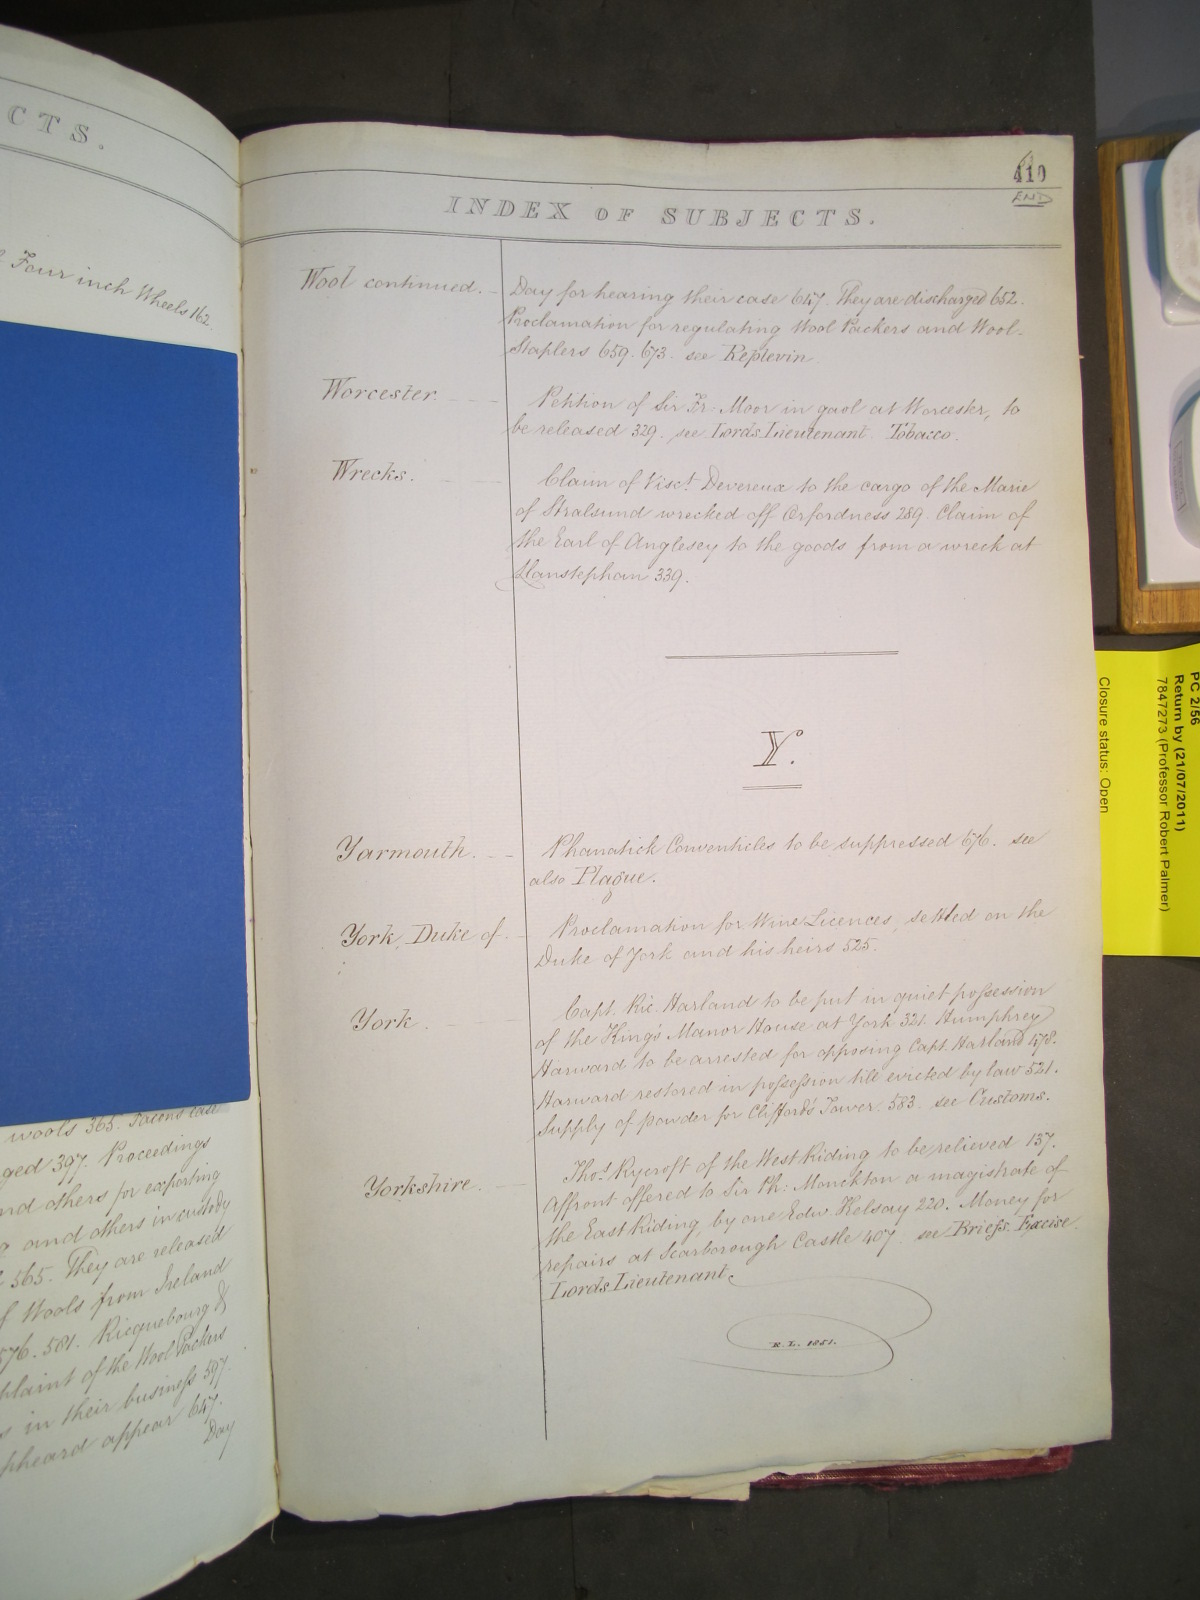 CTS.
Four inch Wheels 162.
wools 365.
ged 397. Proceedings
nd others for exporting
and others in custody
565. They are released
f Wools from Ireland
576. 581. Ricquebourg &
plaint of the Wool Packers
s in their business 597.
pheard appear 647.
Day
410
END
INDEX OF SUBJECTS.
Wool continued. Day for hearing their case 647. They are discharged 652.
Proclamation for regulating Wool Packers and Wool-
Staplers 659. 673. see Replevin
Worcester. Petition of Sir Fr. Moor in gaol at Worcester, to
be released 329. see Lords Lieutenant Tobacco.
Wrecks. Claim of Visct. Devereux to the cargo of the Marie
of Stralsund wrecked off Orfordness 289. Claim of
the Earl of Anglesey to the goods from a wreck at
Llanstephan 339.
Y.
Yarmouth. Phanatick Conventicles to be suppressed 676. see
also Plague.
York, Duke of. Proclamation for Wine Licences, settled on the
Duke of York and his heirs 525.
York. Capt. Ric. Harland to be put in quiet possession
of the King's Manor House at York 321. Humphrey
Harward to be arrested for opposing Capt. Harland 478.
Harward restored in possession till evicted by law 521.
Supply of powder for Clifford's Tower 583. see Customs.
Yorkshire. Thos. Rycroft of the West Riding to be relieved 137.
Affront offered to Sir Ph: Monckton a magistrate of
the East Riding, by one Edw. Kelsay 220. Money for
repairs at Scarborough Castle 407. see Briefs. Excise.
Lords Lieutenant.
R. L. 1851.
PC 2/56
Return by (21/07/2011)
7847273 (Professor Robert Palmer)
Closure status: Open